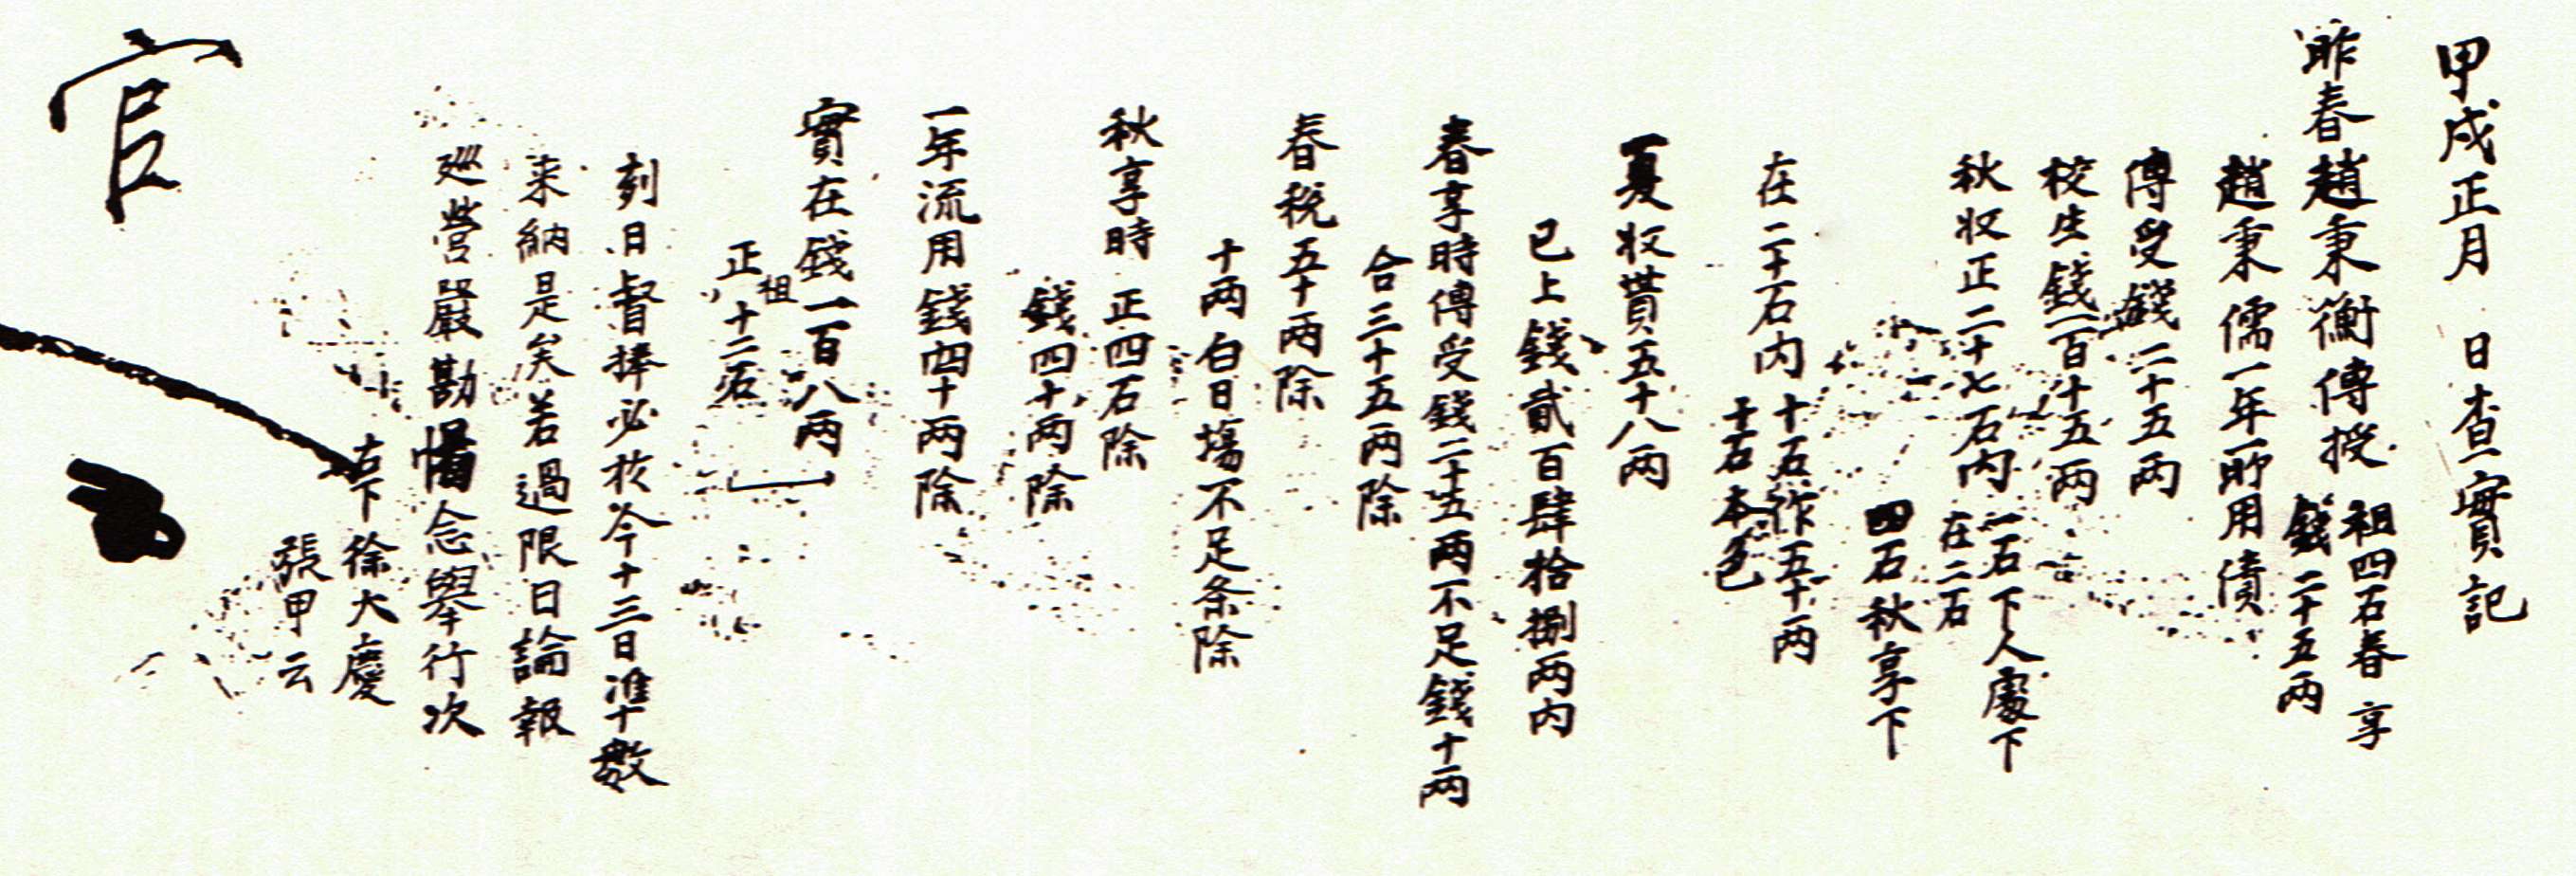 甲戌正月 日查實記
昨春趙秉衡傳授 租四石春享
錢二十五兩
趙秉儒一年所用債
傳受錢二十五兩
校生錢一百十五兩
秋收正二十七石內 一石下人處下
在二石
四石秋享下
在二十石內 十石作五十兩
十石本色
夏收貰五十八兩
已上錢貳百肆拾捌兩內
春享時傳受錢二十五兩不足錢十兩
合三十五兩除
春稅五十兩除
十兩白日場不足条除
秋享時 正四石除
錢四十兩除
一年流用錢四十兩除
實在錢一百八兩
正租十二石
刻日督捧必於今十三日準十數
来納是矣若過限日論報
廵營嚴勘 念舉行次
右下徐大慶
張甲云
官